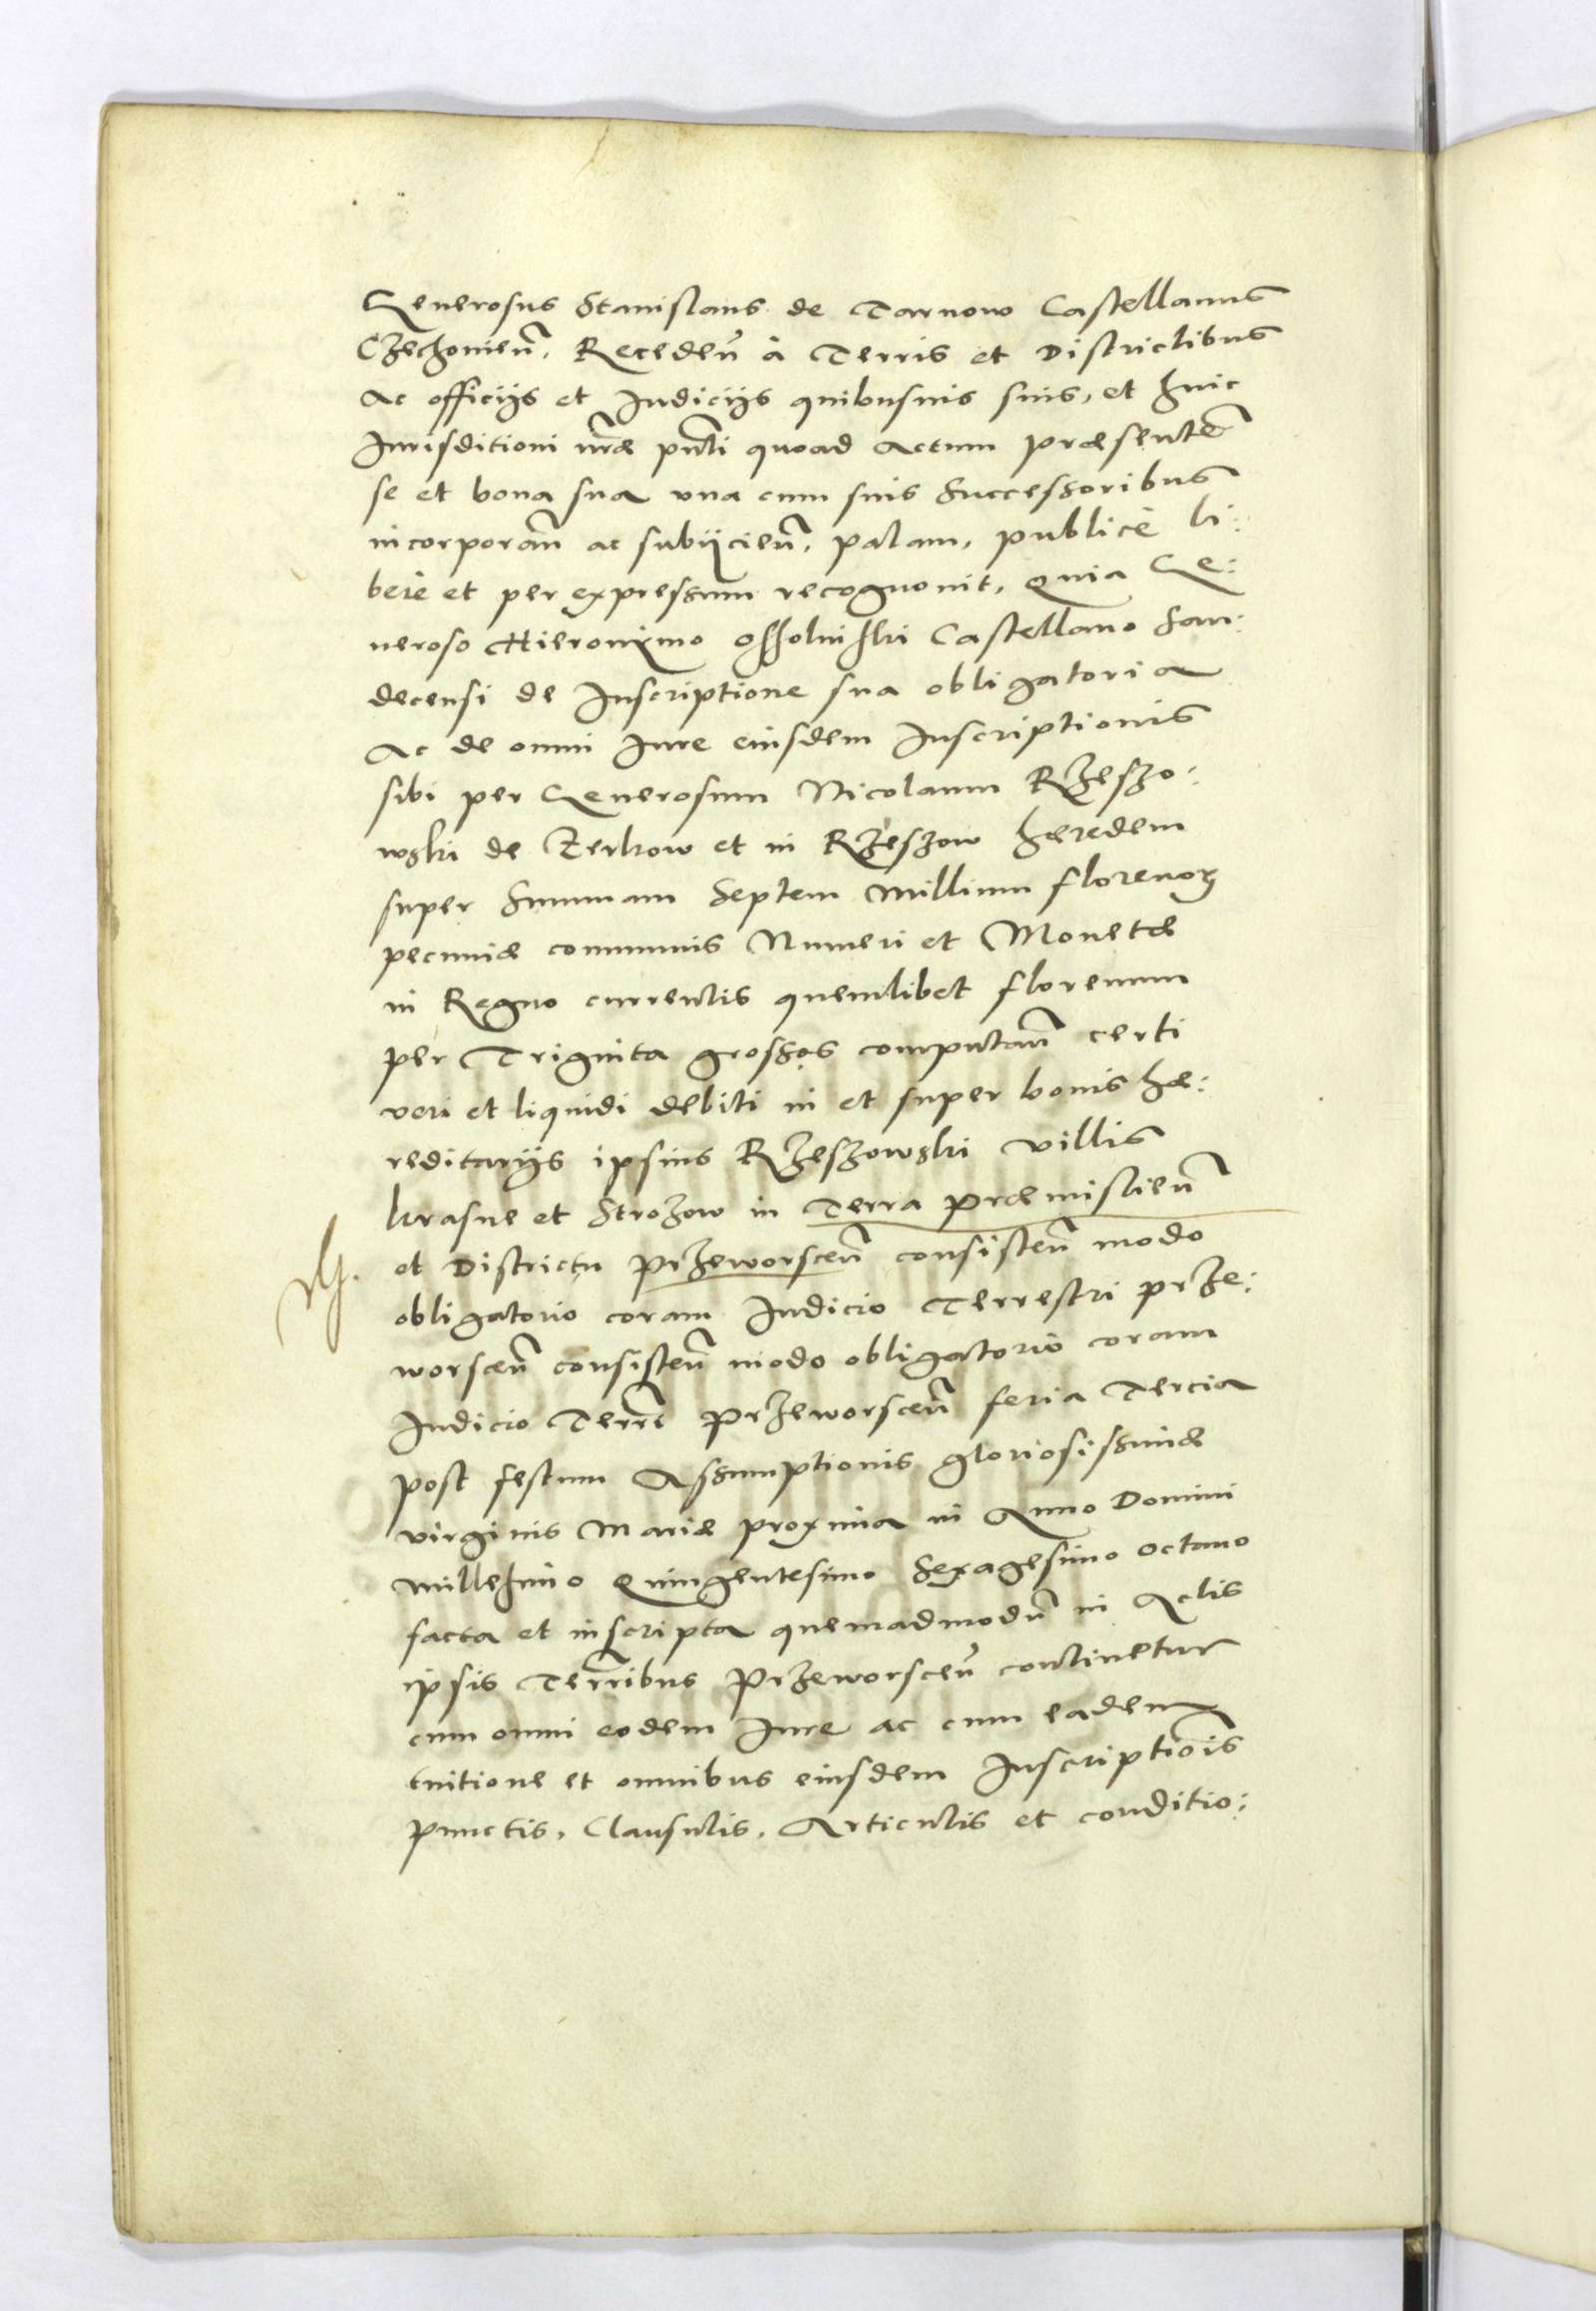 Generosus Stanislaus de Tarnow Castellanus
Czechovieñ. Recedeñ à Terris et Districtibus
Ac officijs et Iudicijs quibusuis suis, et huic
Iurisditioni nr̃æ pñti quoad actum præsentẽ
se et bona sua vna cum suis Successoribus
incorporañ ac subijcieñ, palam, publicè li:
berè et per expressum recognouit, Quia Ge:
neroso Hieronimo Ossolinski Castellano San:
decensi de Inscriptione sua obligatoria
Ac de omni Iure eiusdem Inscriptionis
sibi per Generosum Nicolaum Rzeszo:
wski de Zerkow et in Rzeszow hæredem
super Summam Septem Millium florenoꝝ
pecuniæ communis Numeri et Monetæ
in Regno currentis quemlibet florenum
per Triginta grossos computañ certi
veri et liquidi debiti in et super bonis hæ:
reditarijs ipsius Rzeszowski villis
krasne et Strozow in Terra Præmislieñ
et Districtu Przeworsceñ consisteñ modo
obligatorio coram Iudicio Terrestri Prze:
worsceñ consisteñ modo obligatorio coram
Iudicio Terrẽ Przeworsceñ feria Tercia
post festum Assumptionis gloriosissimæ
virginis Mariæ proxima in Anno Domini
millesimo Quingentesimo Sexagesimo octauo
facta et inscripta quemadmodũ in Actis
ipsis Terr̃ibus Przeworsceñ continetur
cum omni eodem Iure ac cum eadem
tuitione et omnibus eiusdem Inscriptiõis
punctis, Clausulis, Articulis et conditio: